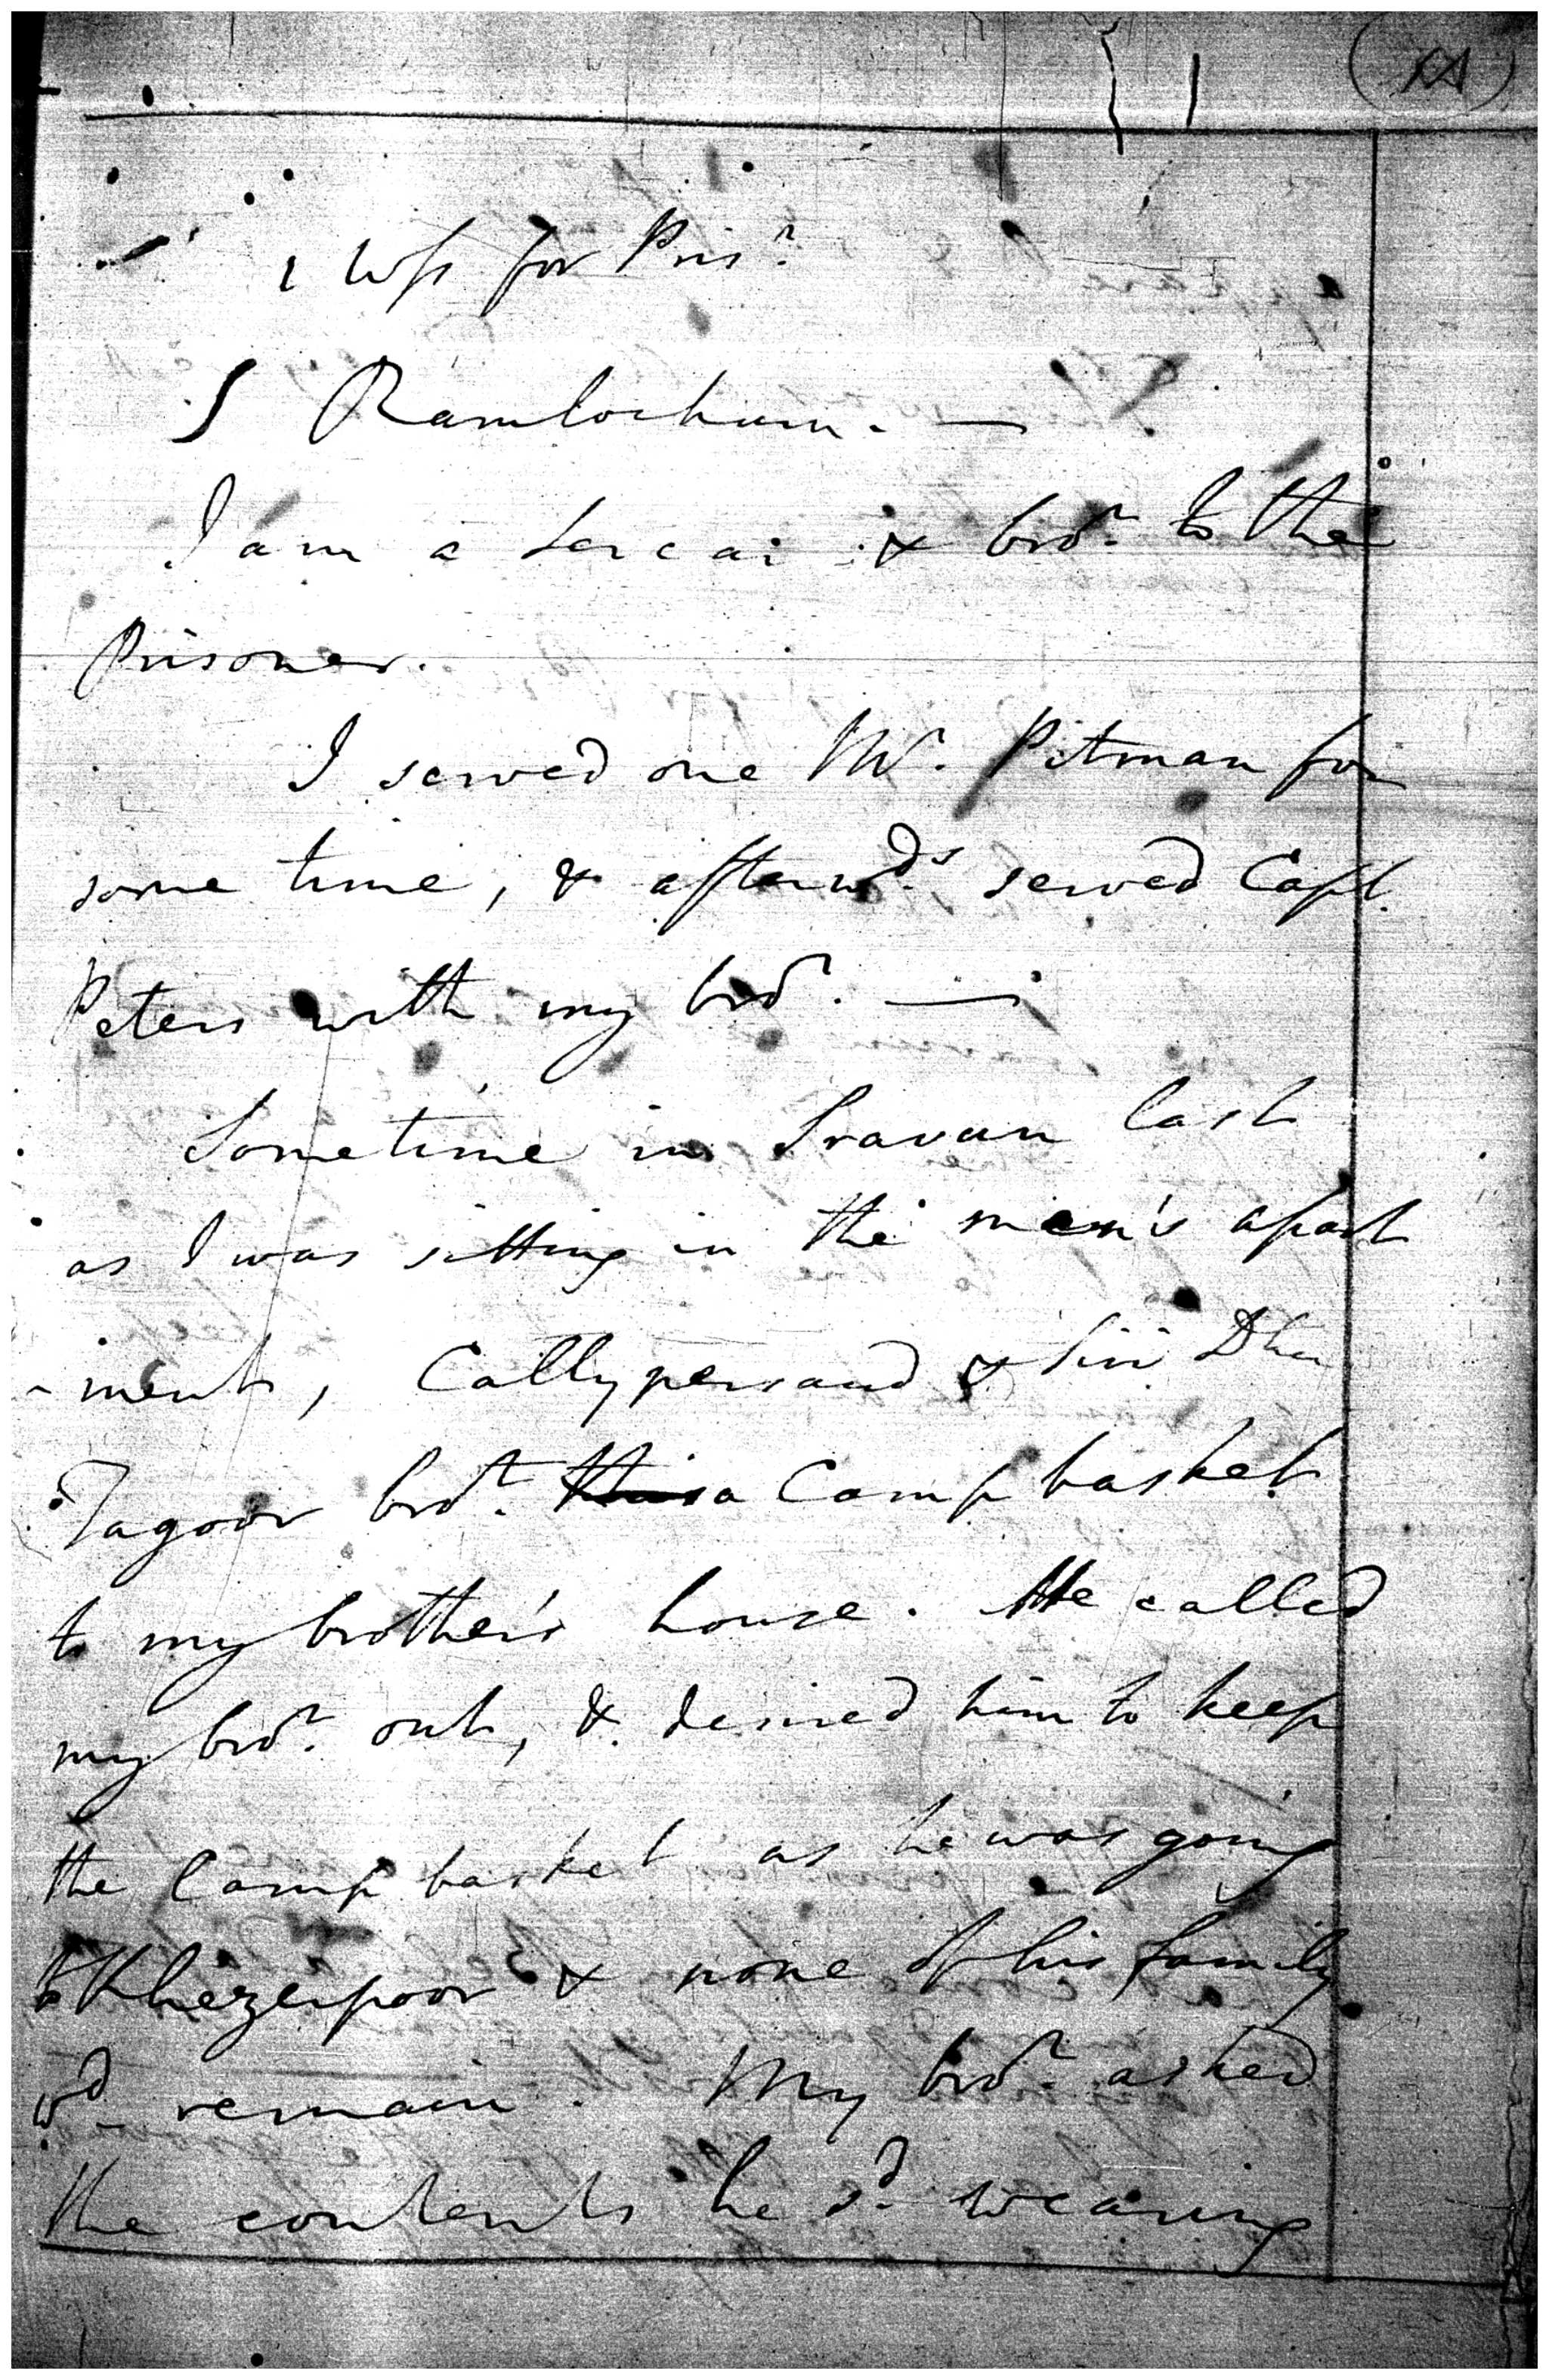 1 Wss for Pris.r
S Ramlochun. —
I am a Sercar & bro.r to the
Prisoner.
I served one Mr. Pitman for
some time, & afterw.ds served Capt.
Peters with my bro.r —
Sometime in Sravan last
as I was sitting in the men's apart
-ment, Callypersaud & Siri Dhu
Tagoor bro.t a Camp basket
to my brother's house. He called
my bro.r out, & desired him to keep
the Camp basket as he was going
to Khezerpoor & none of his family
w.d remain. My bro.r asked
the contents he s.d wearing